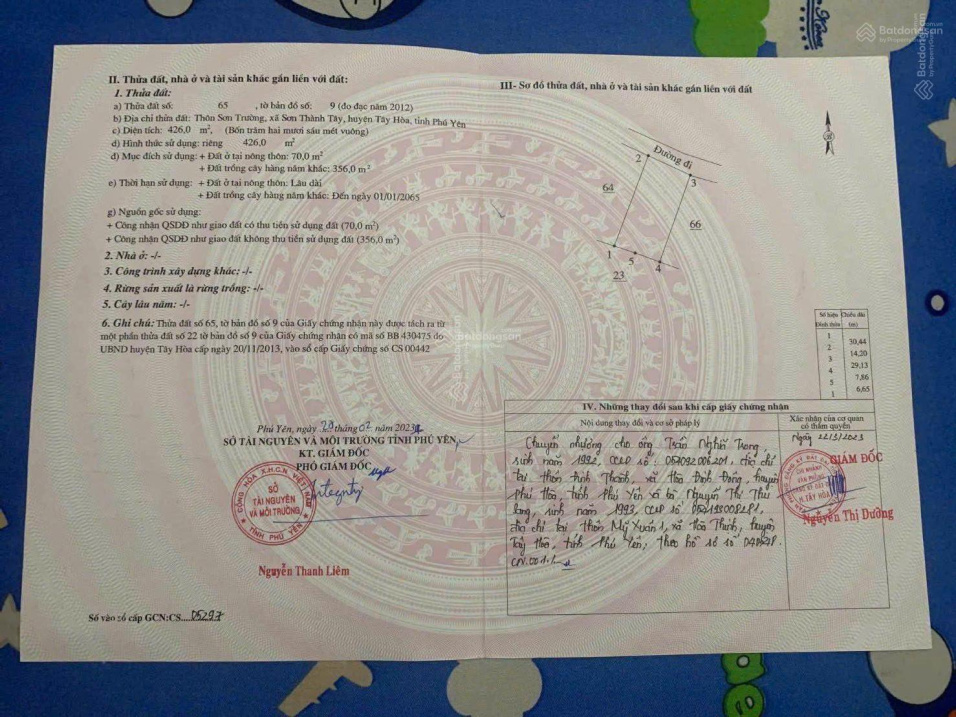 II. Thửa đất, nhà ở và tài sản khác gắn liền với đất:
1. Thửa đất:
a) Thửa đất số: 65 , tờ bản đồ số: 9 (đo đạc năm 2012)
b) Địa chỉ thửa đất: Thôn Sơn Trường, xã Sơn Thành Tây, huyện Tây Hòa, tỉnh Phú Yên
c) Diện tích: 426,0 m², (Bốn trăm hai mươi sáu mét vuông)
d) Hình thức sử dụng: riêng 426,0 m²
đ) Mục đích sử dụng: + Đất ở tại nông thôn: 70,0 m²
+ Đất trồng cây hàng năm khác: 356,0 m²
e) Thời hạn sử dụng: + Đất ở tại nông thôn: Lâu dài
+ Đất trồng cây hàng năm khác: Đến ngày 01/01/2065
g) Nguồn gốc sử dụng:
+ Công nhận QSDĐ như giao đất có thu tiền sử dụng đất (70,0 m²)
+ Công nhận QSDĐ như giao đất không thu tiền sử dụng đất (356,0 m²)
2. Nhà ở: -/-
3. Công trình xây dựng khác: -/-
4. Rừng sản xuất là rừng trồng: -/-
5. Cây lâu năm: -/-
6. Ghi chú: Thửa đất số 65, tờ bản đồ số 9 của Giấy chứng nhận này được tách ra từ
một phần thửa đất số 22 tờ bản đồ số 9 của Giấy chứng nhận có mã số BB 430475 do
UBND huyện Tây Hòa cấp ngày 20/11/2013, vào sổ cấp Giấy chứng số CS 00442
Phú Yên, ngày 20 tháng 02 năm 2023
SỞ TÀI NGUYÊN VÀ MÔI TRƯỜNG TỈNH PHÚ YÊN
KT. GIÁM ĐỐC
PHÓ GIÁM ĐỐC
CỘNG HÒA X.H.C.N VIỆT NAM
SỞ
TÀI NGUYÊN
VÀ MÔI TRƯỜNG
TỈNH PHÚ YÊN
Nguyễn Thanh Liêm
Số vào sổ cấp GCN:CS....05297
III- Sơ đồ thửa đất, nhà ở và tài sản khác gắn liền với đất
Đường đi
2
3
64
66
1
5
4
23
Số hiệu Chiều dài
Đỉnh thửa (m)
1
30,44
2
14,20
3
29,13
4
7,86
5
6,65
1
IV. Những thay đổi sau khi cấp giấy chứng nhận
Nội dung thay đổi và cơ sở pháp lý
Xác nhận của cơ quan
có thẩm quyền
Chuyển nhượng cho ông Trần Nghĩa Trọng
sinh năm 1992, CCCD số: 054092006201, địa chỉ
tại thôn Định Thành, xã Hòa Định Đông, huyện
Phú Hòa, tỉnh Phú Yên và bà Nguyễn Thị Thu
sinh năm 1993, CCCD số
địa chỉ tại thôn Mỹ Xuân 1, xã Hòa Thịnh, huyện
Tây Hòa, tỉnh Phú Yên; theo hồ sơ số
CN.001.
Ngày 22/3/2023
GIÁM ĐỐC
CHI NHÁNH
VĂN PHÒNG
H. TÂY HÒA
Nguyễn Thị Dưỡng
Batdongsan
by PropertyGuru